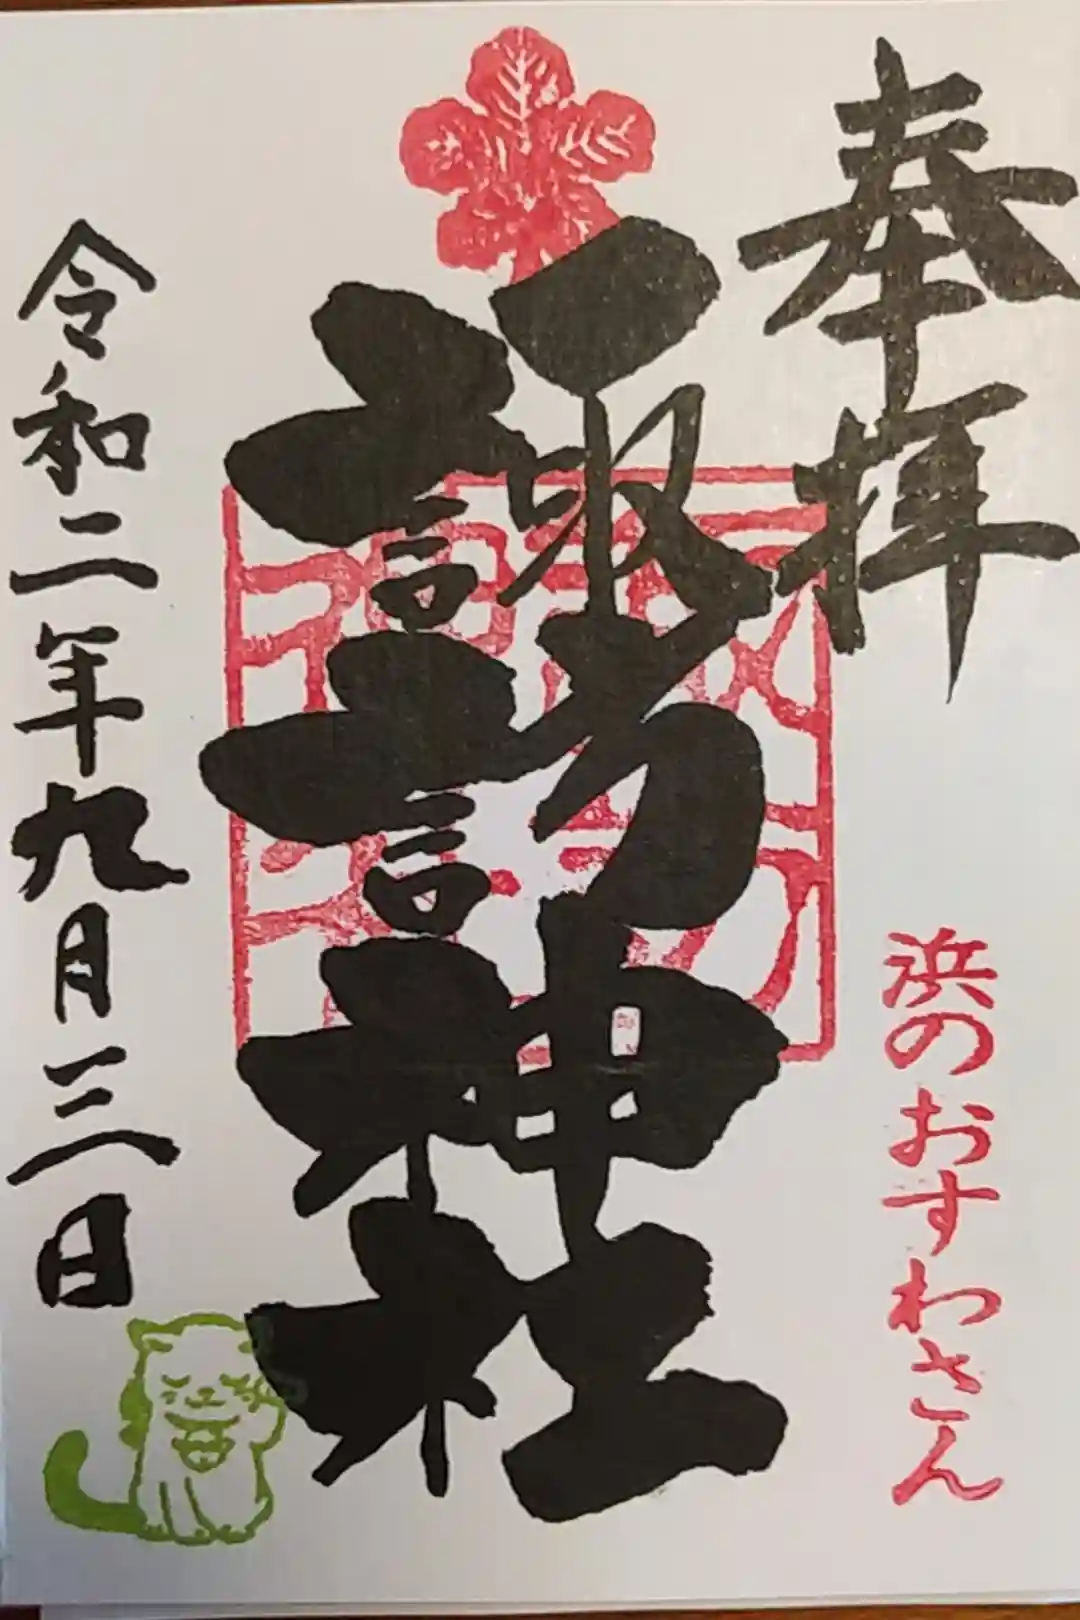 奉拝
浜のおすわさん
諏訪神社
令和二年九月三日